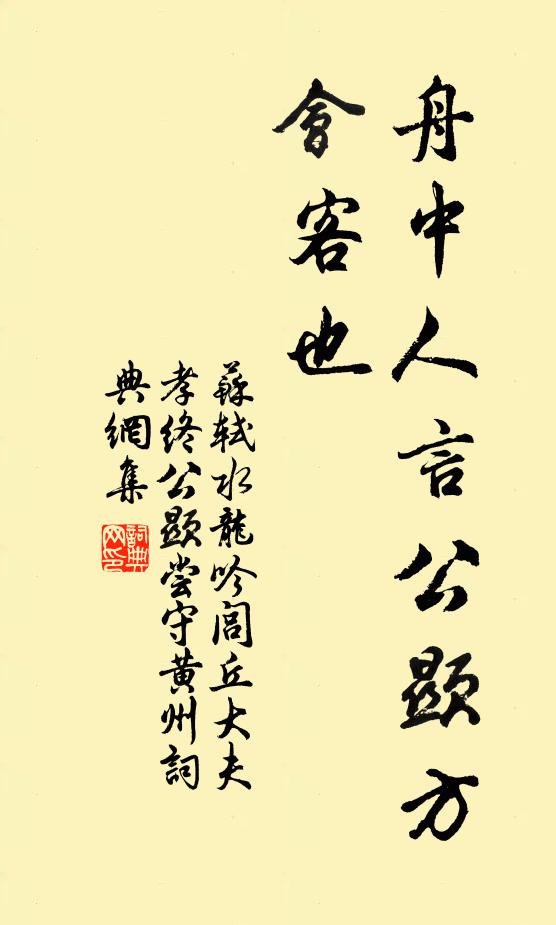 舟中人言公顯方
會客也
蘇軾水龍吟閭丘大夫
孝終公顯嘗守黃州詞
典網集
詞典
网印